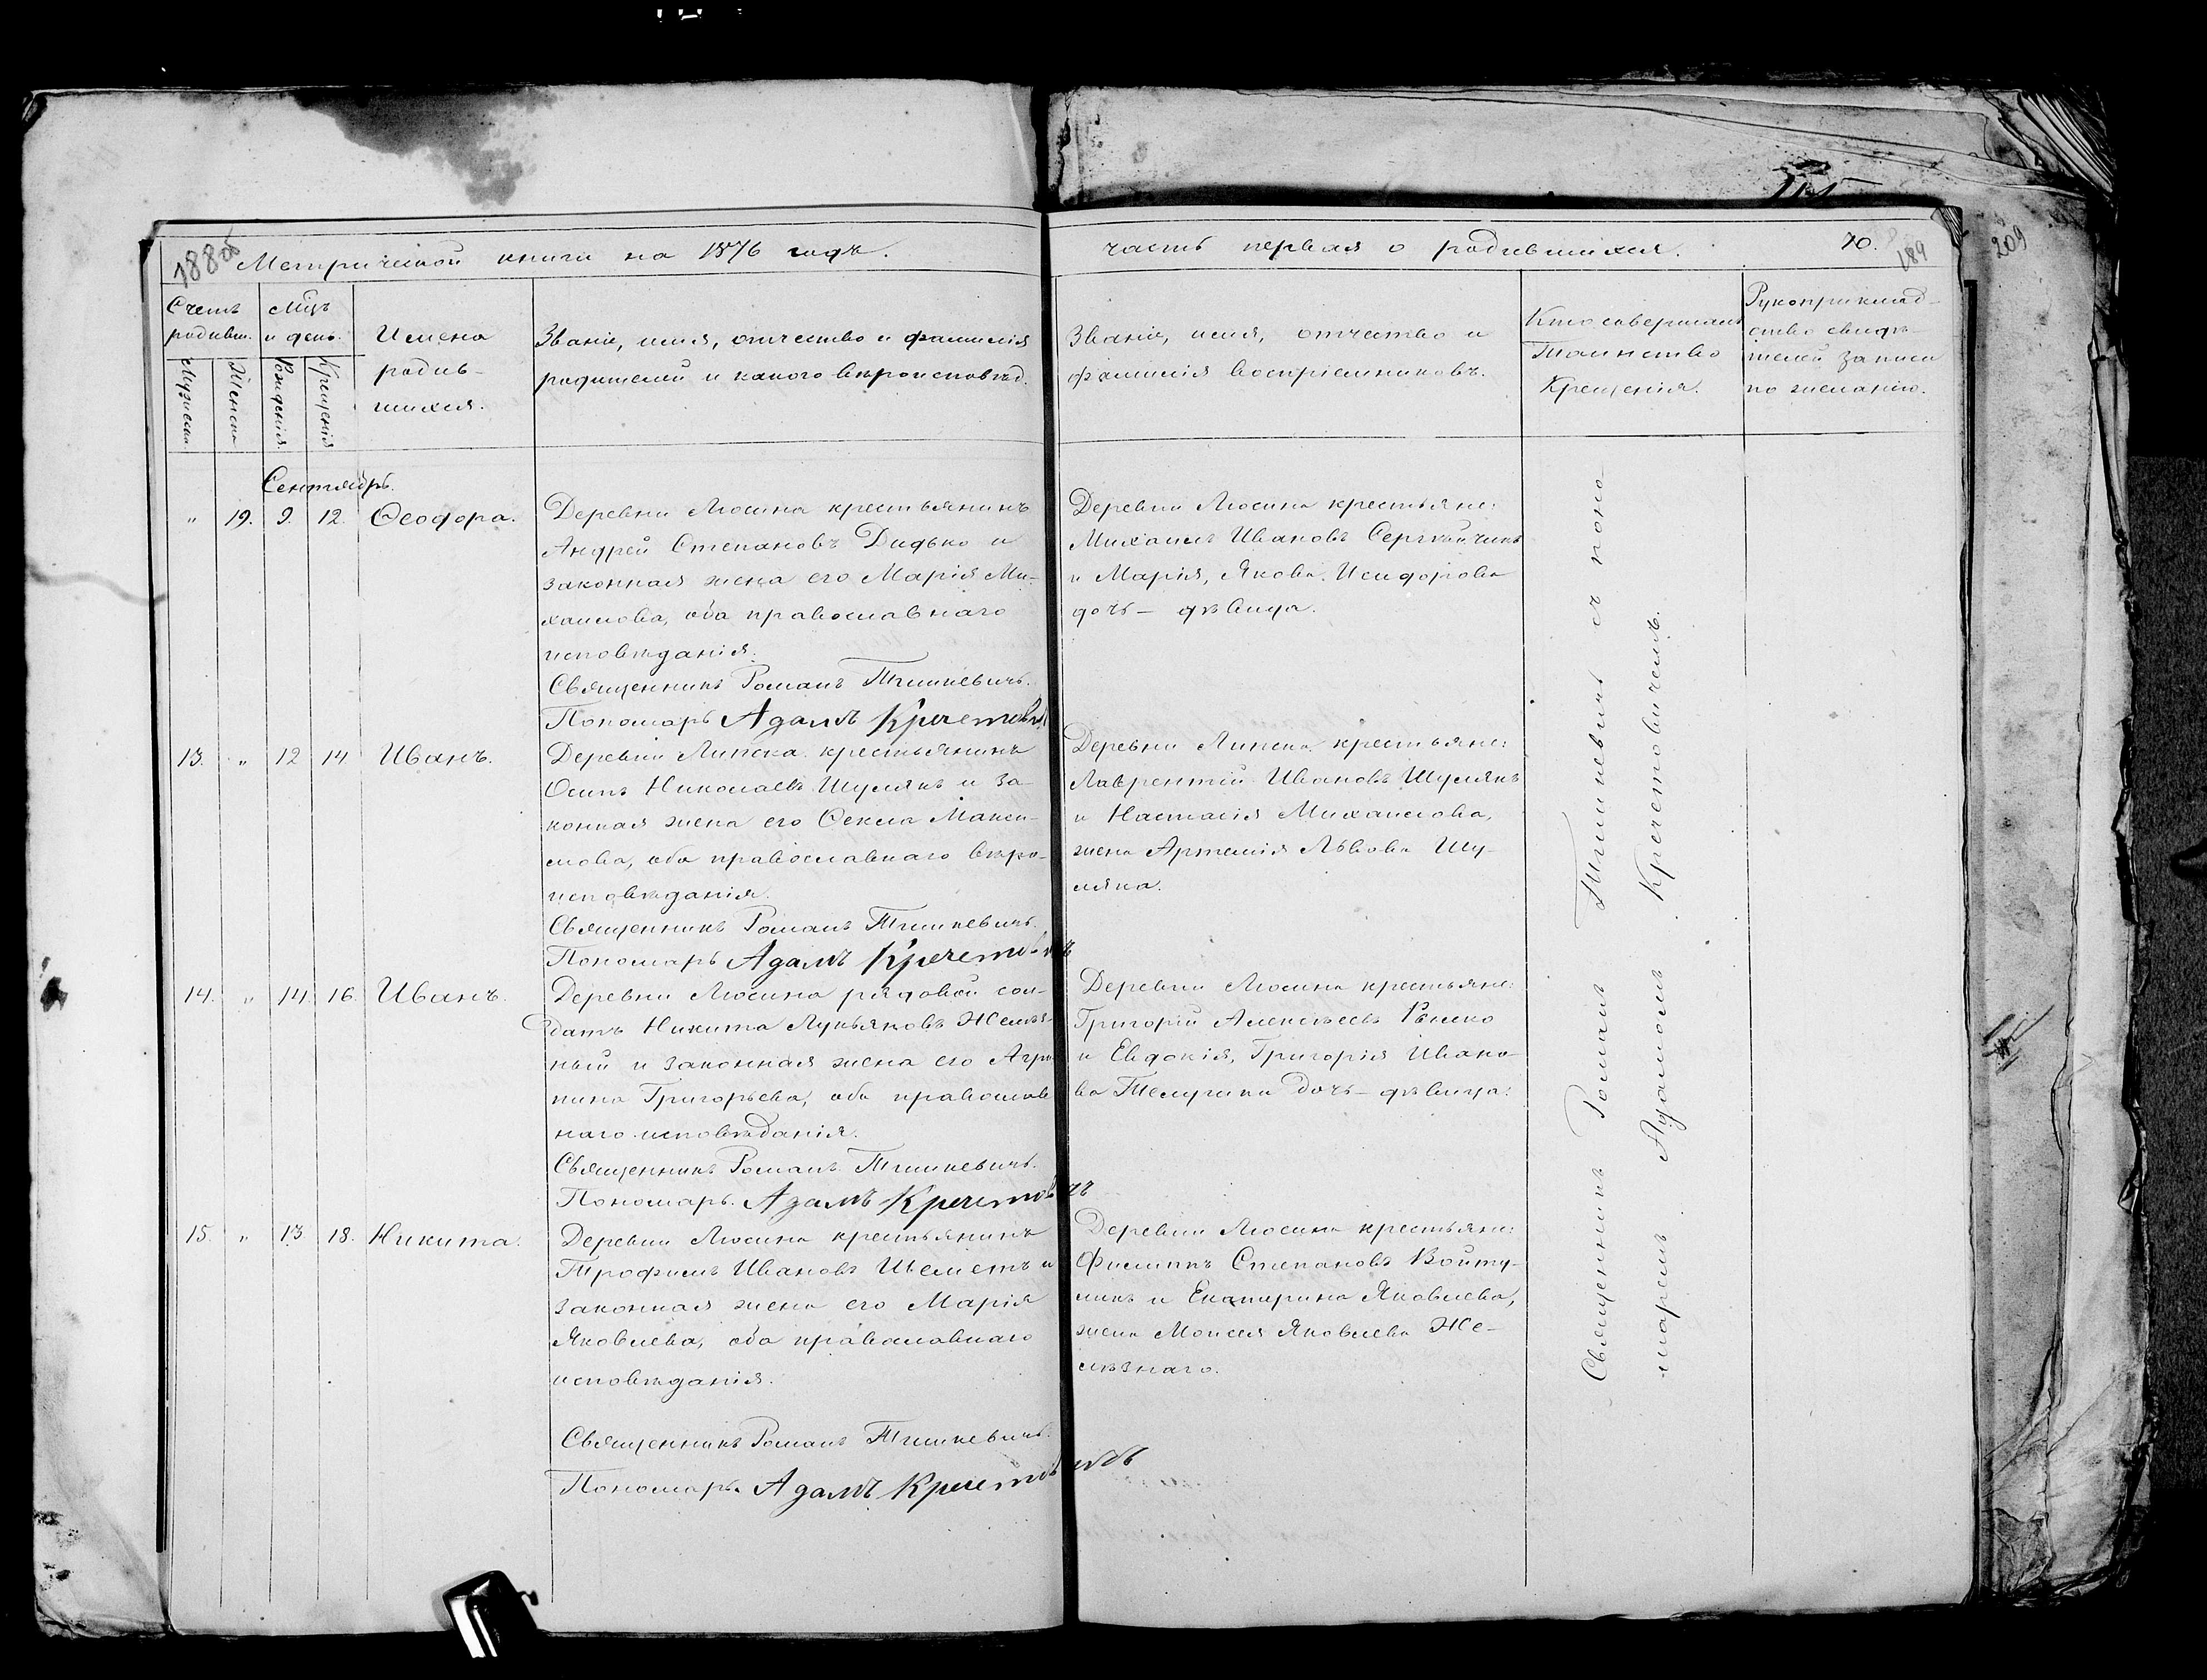 188об
Метрической книги на 1876 годъ.
Счетъ родивш.
Мужеска
Женска
Мцъ и день.
Рожденія
Крещенія
Имена
родив-
шихся.
Званіе, имя, отчество и фамилія
родителей и какого вѣроисповѣд.
Сентябрь.
" 19. 9. 12. Ѳеодора.
Деревни Люсина крестьянинъ
Андрей Степановъ Дидько и
законная жена его Марія Ми-
хаилова, оба православнаго
исповѣданія.
Священникъ Романъ Тишкевичъ.
Пономарь Адамъ Кречетовичъ
13. " 12 14 Иванъ.
Деревни Липска крестьянинъ
Осипъ Николаевъ Шулякъ и за-
конная жена его Ѳекла Макси-
мова, оба православнаго вѣро-
исповѣданія.
Священникъ Романъ Тишкевичъ.
Пономарь Адамъ Кречетовичъ
14. " 14. 16. Иванъ.
Деревни Люсина рядовой сол-
датъ Никита Лукьяновъ Желѣз-
ный и законная жена его Агри-
пина Григорьева, оба православ
наго исповѣданія.
Священникъ Романъ Тишкевичъ.
Пономарь Адамъ Кречетовичъ
15. " 13. 18. Никита.
Деревни Люсина крестьянинъ
Трофимъ Ивановъ Шеметъ и
законная жена его Марія
Яковлева, оба православнаго
исповѣданія.
Священникъ Романъ Тишкевичъ.
Пономарь Адамъ Кречетовичъ
часть первая о родившихся.
70.
189
209
Званіе, имя, отчество и
фамилія воспріемниковъ.
Кто совершалъ
Таинство
Крещенія.
Рукоприклад-
ство свидѣ-
телей записи
по желанію.
Деревни Люсина крестьяне:
Михаилъ Ивановъ Сергѣйчикъ
и Марія, Якова Исидорова
дочь — дѣвица.
Деревни Липска крестьяне:
Лаврентій Ивановъ Шулякъ
и Настасія Михаилова,
жена Артемія Львова Шу-
ляка.
Деревни Люсина крестьяне:
Григорій Алексѣевъ
и Евдокія, Григорія Ивано-
ва дочь — дѣвица.
Деревни Люсина крестьяне:
Филиппъ Степановъ Войту-
ликъ и Екатерина Яковлева,
жена Моисея Яковлева Же-
лѣзнаго.
Священникъ Романъ Тишкевичъ съ поно-
маремъ Адамомъ Кречетовичемъ.